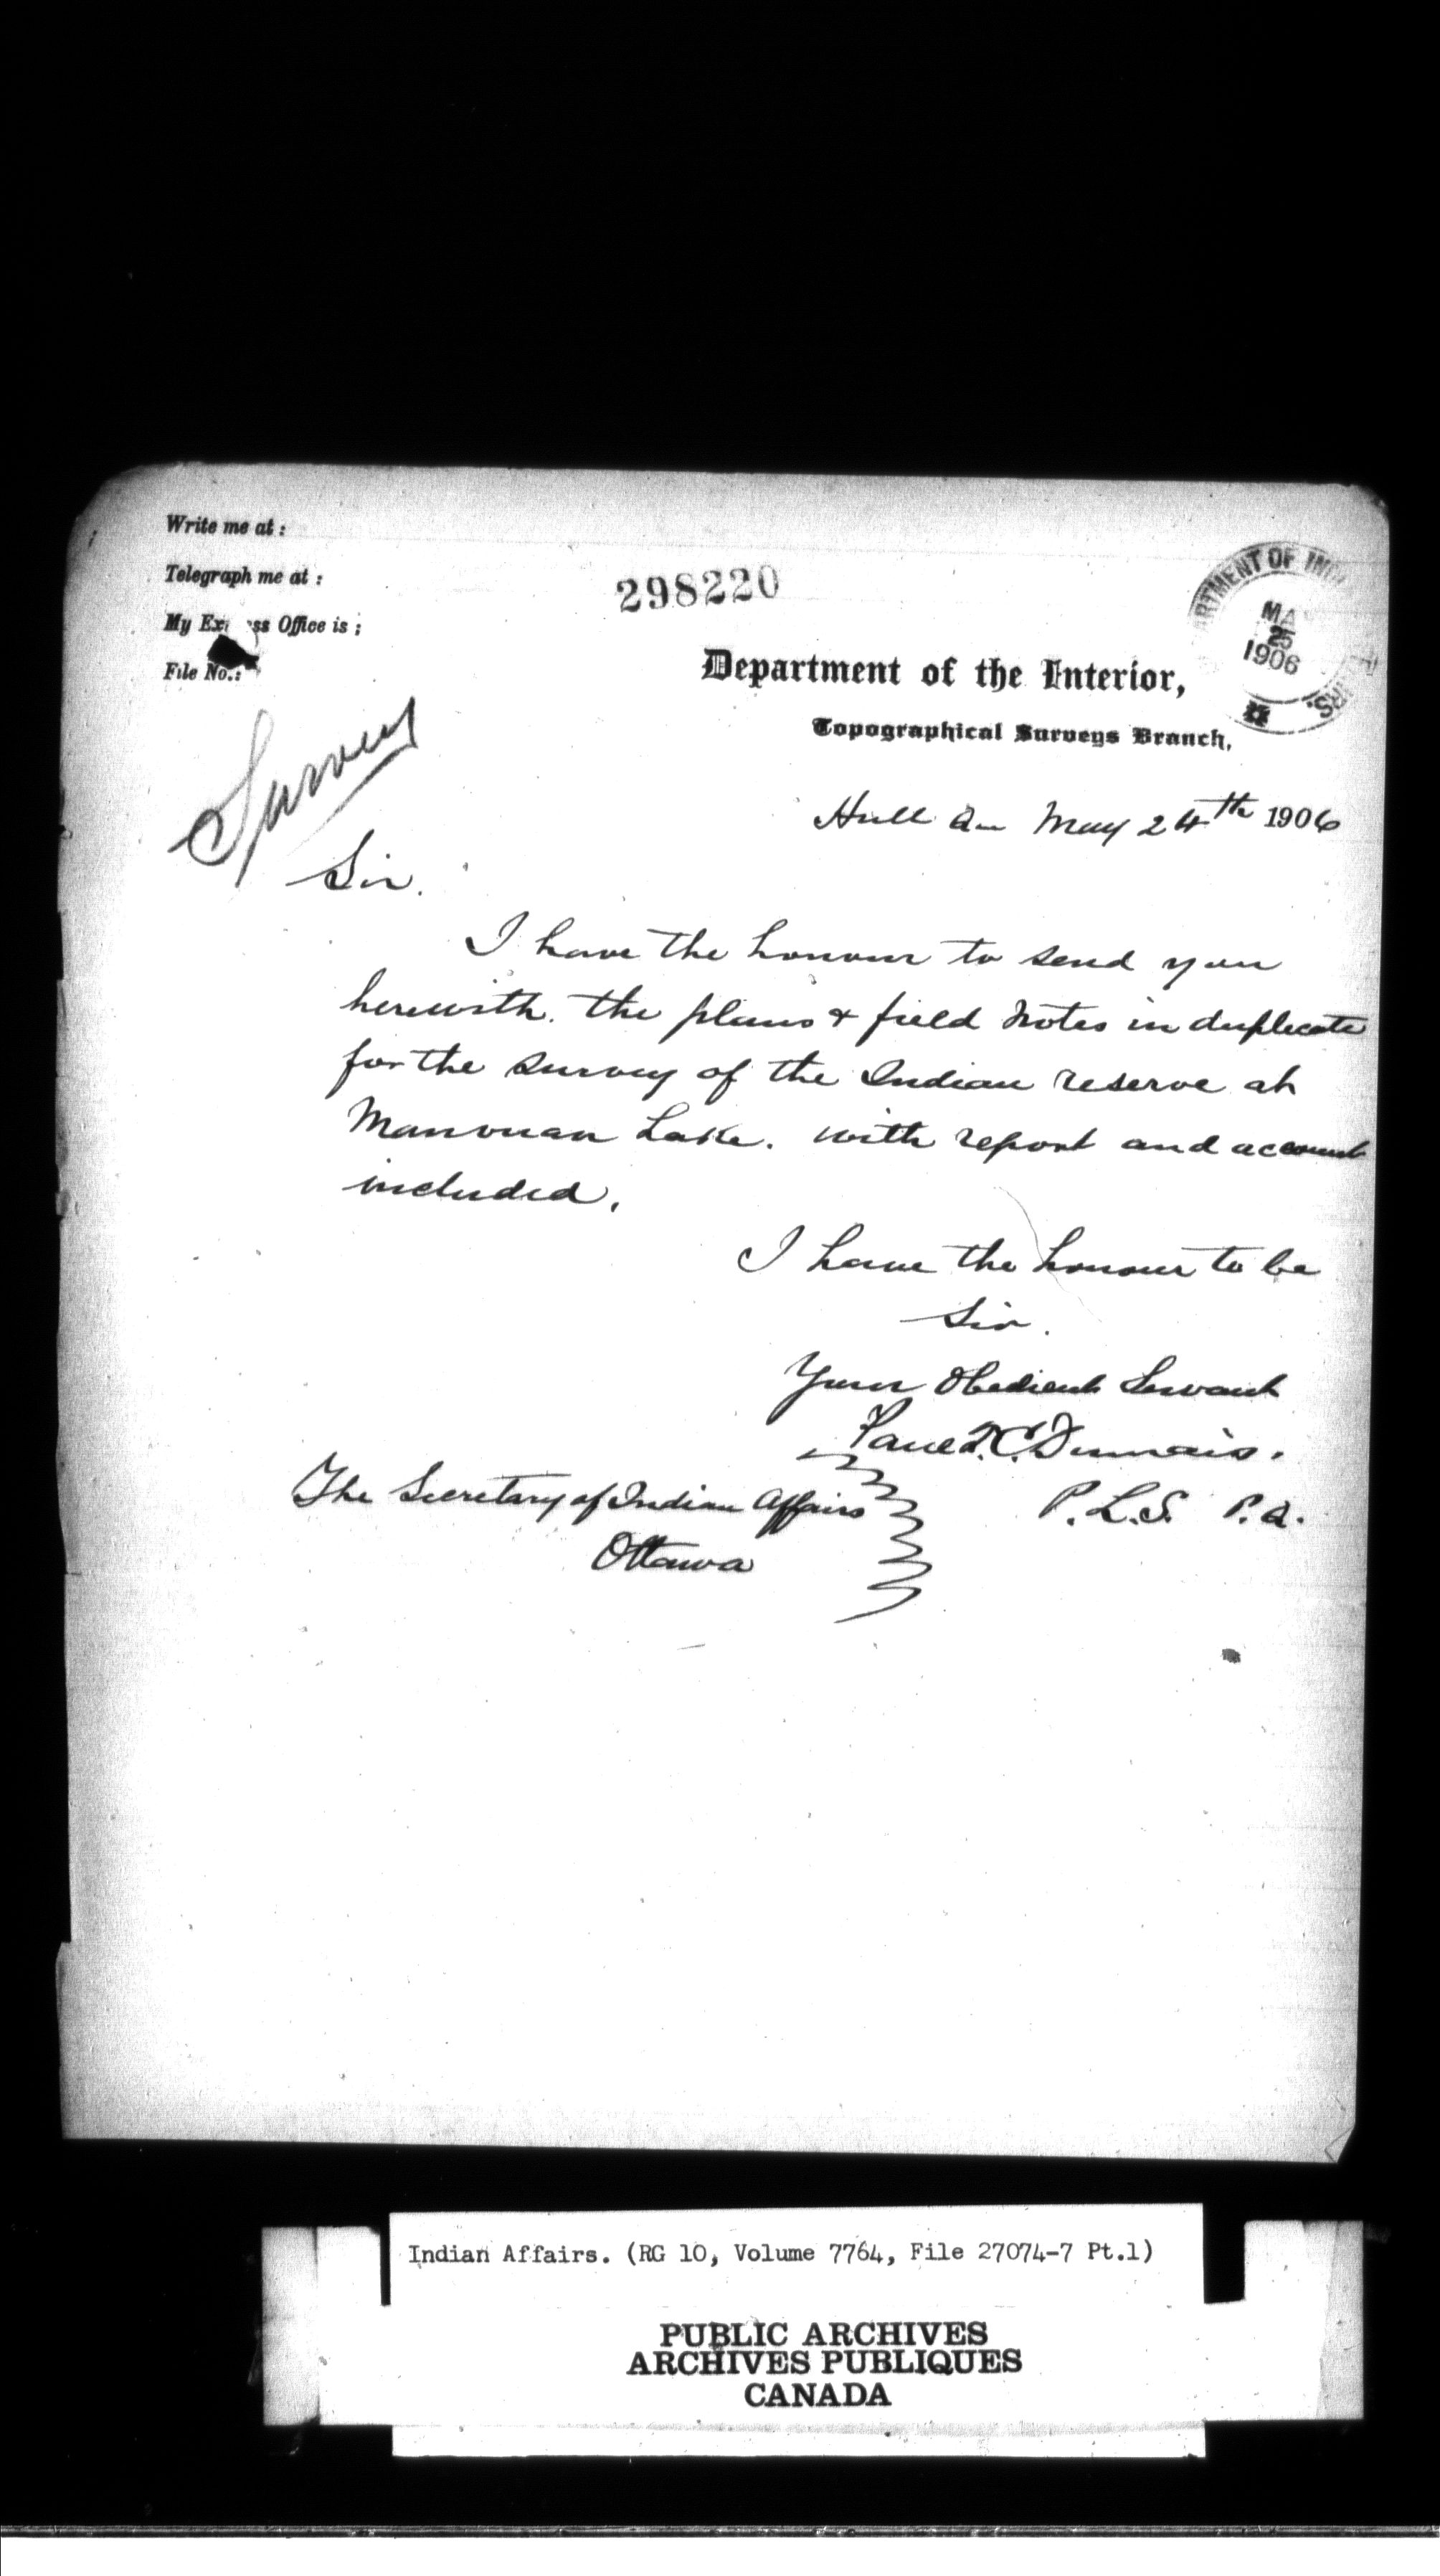 Write me at :
Telegraph me at :
My Ex ss Office is ;
File No.:
298220
RTMENT OF IND
MA
25
1906
RS.
Department of the Interior,
Topographical Surveys Branch,
Survey
Hull May 24th 1906
Sir.
I have the honour to send you
herewith. the plans & field notes in duplicate
for the survey of the Indian reserve at
Manouan Lake. with report and account
included.
I have the honour to be
Sir.
Your Obedient Servant
Paul T. C. Dumais.
P.L.S. P.Q.
The Secretary of Indian Affairs
Ottawa
Indian Affairs. (RG 10, Volume 7764, File 27074-7 Pt.1)
PUBLIC ARCHIVES
ARCHIVES PUBLIQUES
CANADA